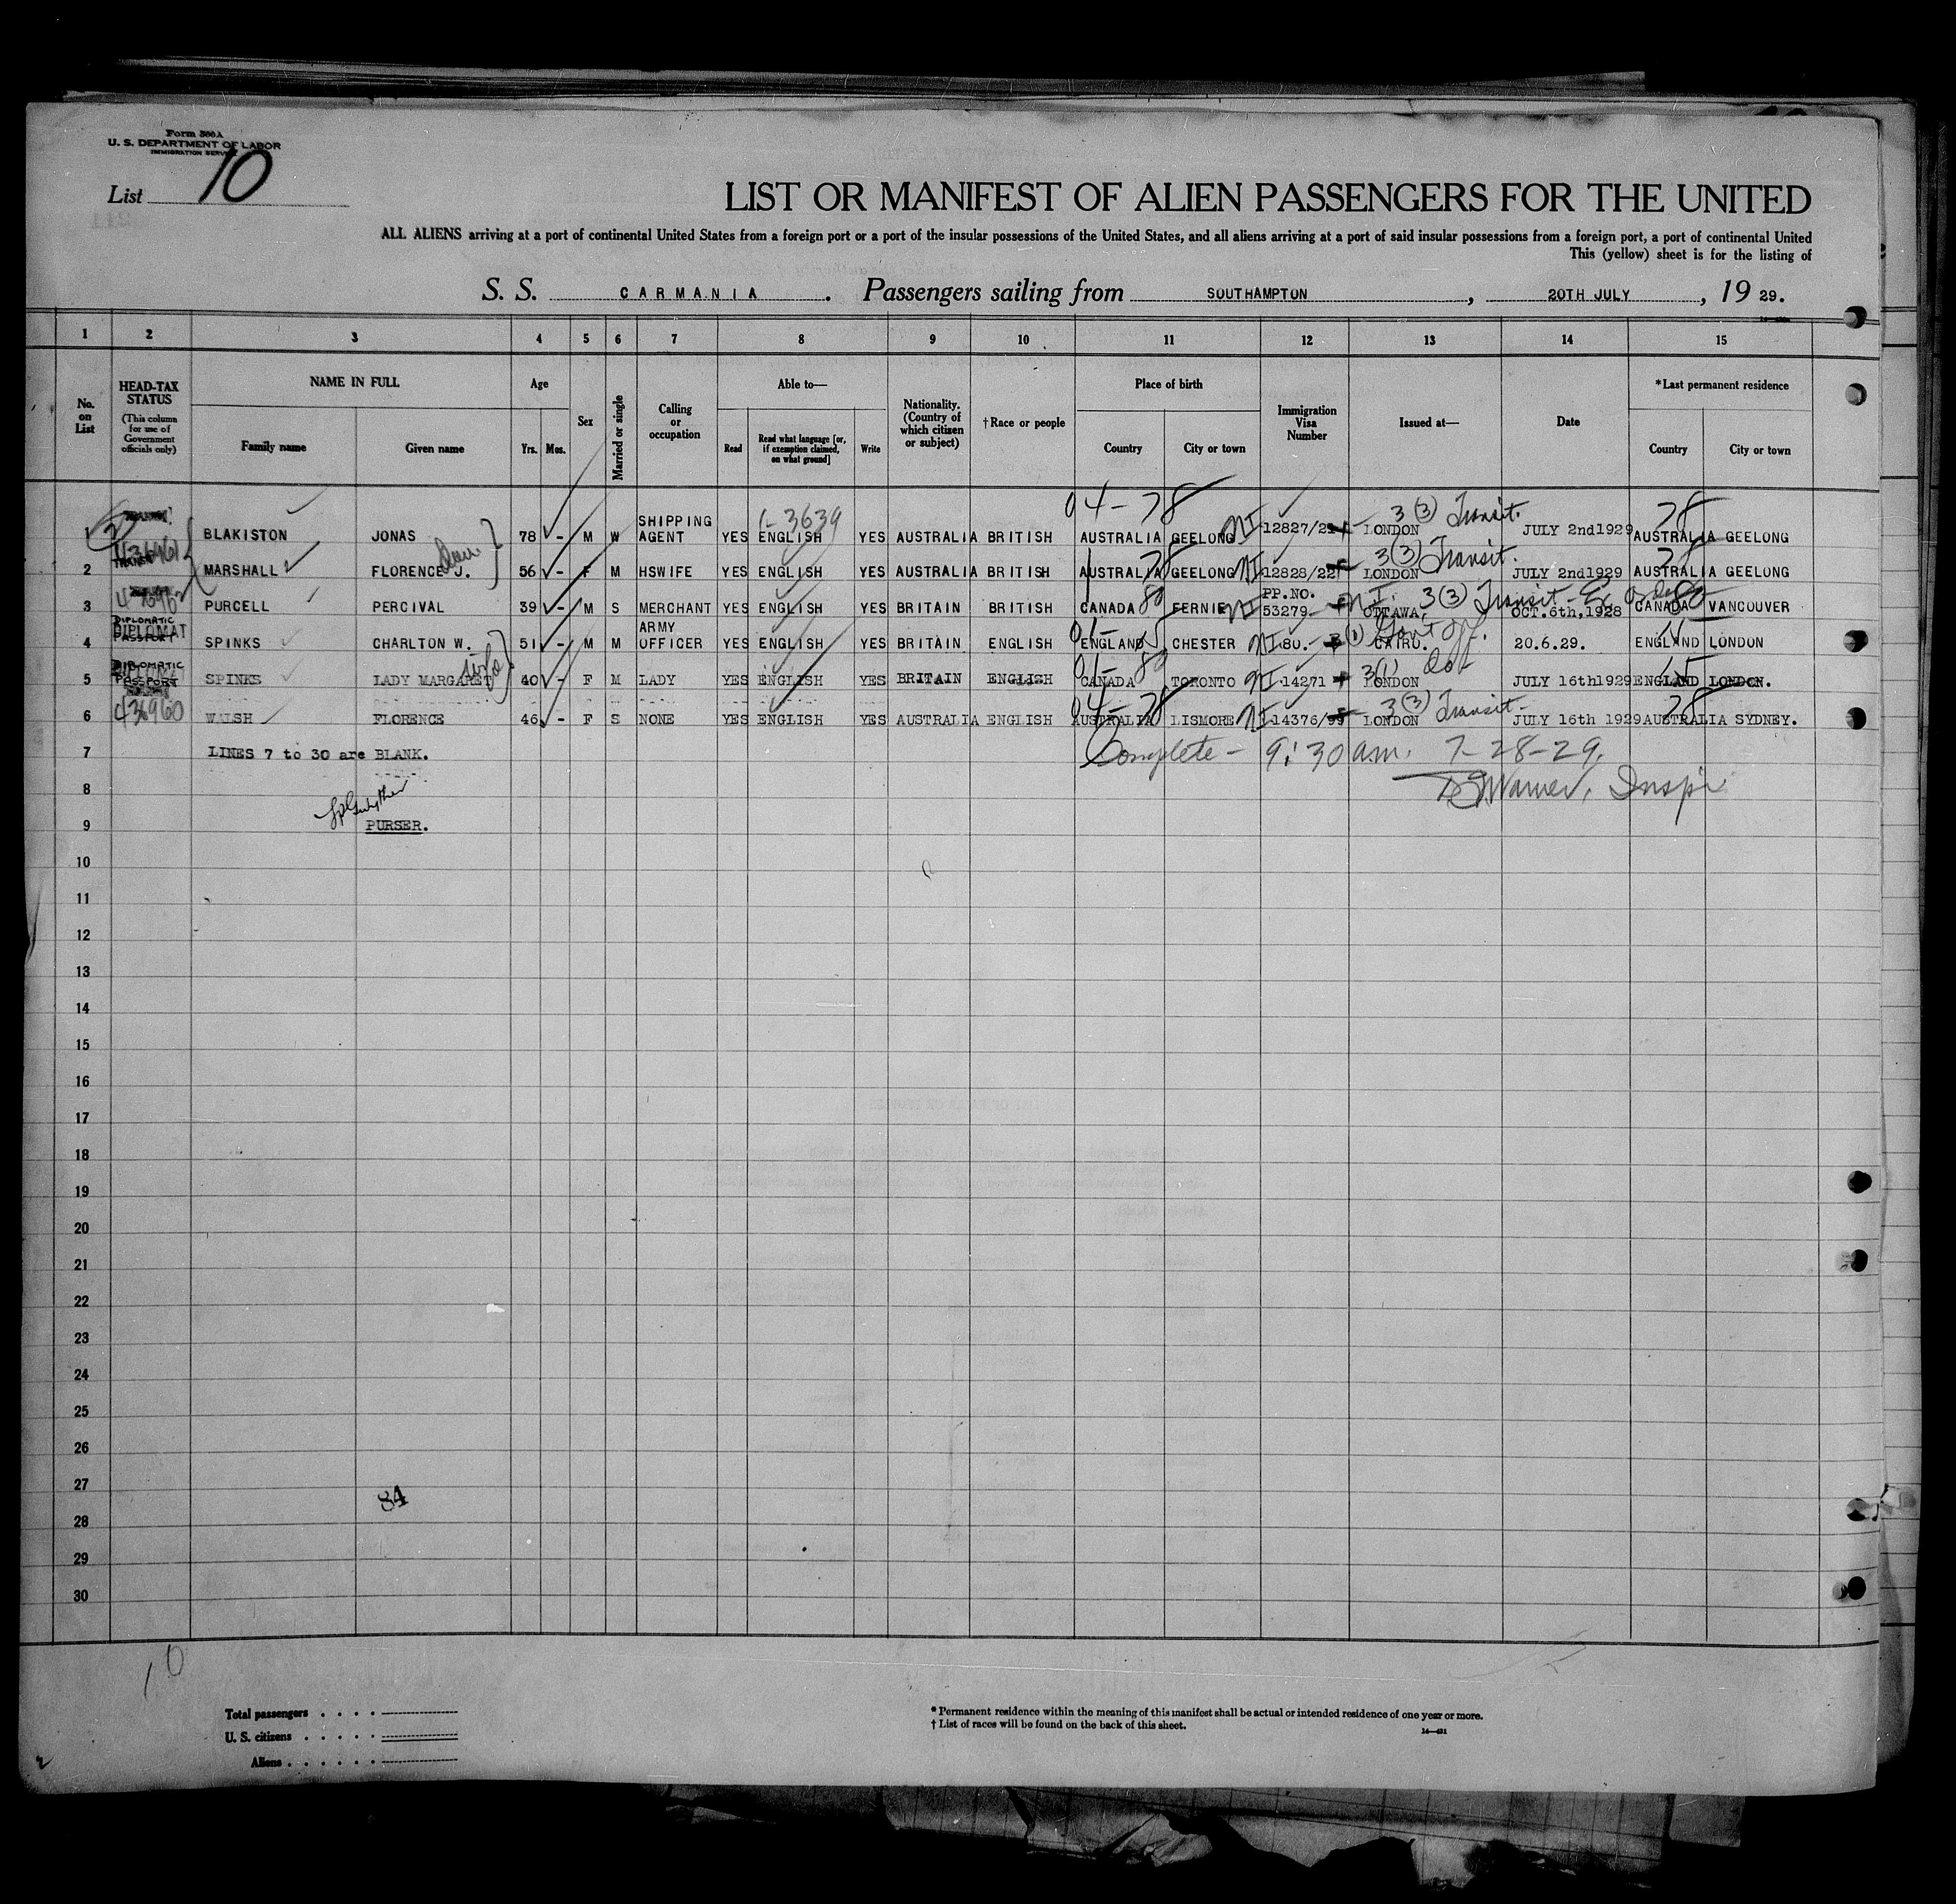 Form 500A
U. S. DEPARTMENT OF LABOR
IMMIGRATION SERVICE
List 10
LIST OR MANIFEST OF ALIEN PASSENGERS FOR THE UNITED
ALL ALIENS arriving at a port of continental United States from a foreign port or a port of the insular possessions of the United States, and all aliens arriving at a port of said insular possessions from a foreign port, a port of continental United
This (yellow) sheet is for the listing of
S. S. CARMANIA . Passengers sailing from SOUTHAMPTON , 20TH JULY , 19 29.
1 2 3 4 5 6 7 8 9 10 11 12 13 14 15
No. on List
HEAD-TAX STATUS (This column for use of Government officials only)
NAME IN FULL Family name Given name
Age Yrs. Mos.
Sex
Married or single
Calling or occupation
Able to— Read Read what language [or, if exemption claimed, on what ground] Write
Nationality. (Country of which citizen or subject)
†Race or people
Place of birth Country City or town
Immigration Visa Number
Issued at—
Date
*Last permanent residence Country City or town
04-78 3 (3) Transit. 78
1-3639
1 BLAKISTON JONAS 78 - M W SHIPPING AGENT YES ENGLISH YES AUSTRALIA BRITISH AUSTRALIA GEELONG NI 12827/22 LONDON JULY 2nd1929 AUSTRALIA GEELONG
78 3(3) Transit. 78
2 MARSHALL FLORENCE J. 56 - F M HSWIFE YES ENGLISH YES AUSTRALIA BRITISH AUSTRALIA GEELONG NI 12828/22 LONDON JULY 2nd1929 AUSTRALIA GEELONG
3 PURCELL PERCIVAL 39 - M S MERCHANT YES ENGLISH YES BRITAIN BRITISH CANADA 80 FERNIE NI PP.NO. 53279 NI. 3(3) Transit - Ex OTTAWA. OCT.6th,1928 CANADA 80 VANCOUVER
DIPLOMATIC PASSPORT
4 SPINKS CHARLTON W. 51 - M M ARMY OFFICER YES ENGLISH YES BRITAIN ENGLISH ENGLAND CHESTER NI 80. Gov't Off. CAIRO. 20.6.29. ENGLAND LONDON
DIPLOMATIC PASSPORT
wife
5 SPINKS LADY MARGARET 40 - F M LADY YES ENGLISH YES BRITAIN ENGLISH CANADA 80 TORONTO NI 14271 3(1) LONDON JULY 16th1929 ENGLAND LONDON.
436960
6 WALSH FLORENCE 46 - F S NONE YES ENGLISH YES AUSTRALIA ENGLISH 04-78 AUSTRALIA LISMORE NI 14376/99 3(3) Transit- LONDON JULY 16th 1929 78 AUSTRALIA SYDNEY.
7 LINES 7 to 30 are BLANK. Complete - 9:30 a.m. 7-28-29.
8 Warner, Inspr
9 PURSER.
10
11
12
13
14
15
16
17
18
19
20
21
22
23
24
25
26
27
84
28
29
30
10
Total passengers
U. S. citizens
Aliens
* Permanent residence within the meaning of this manifest shall be actual or intended residence of one year or more.
† List of races will be found on the back of this sheet.
14—431